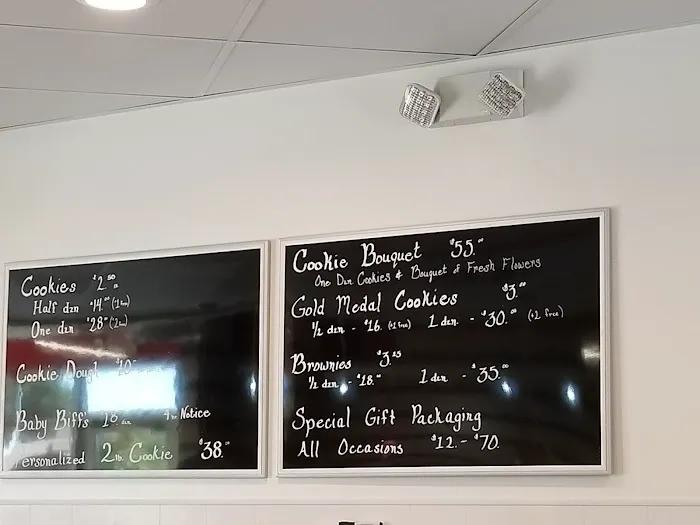 Cookies $2.50
Half dzn $14.00 (1 free)
One dzn $28.00 (2 free)
Cookie Dough $10
Baby Biff's 18 4 hr Notice
Personalized 2 lb. Cookie $38.00
Cookie Bouquet $55.00
One Dzn Cookies & Bouquet of Fresh Flowers
Gold Medal Cookies $3.00
1/2 dzn - $16. (+1 free) 1 dzn. - $30.00 (+2 free)
Brownies $3.25
1/2 dzn - $18.00 1 dzn - $35.00
Special Gift Packaging
All Occasions $12. - $70.